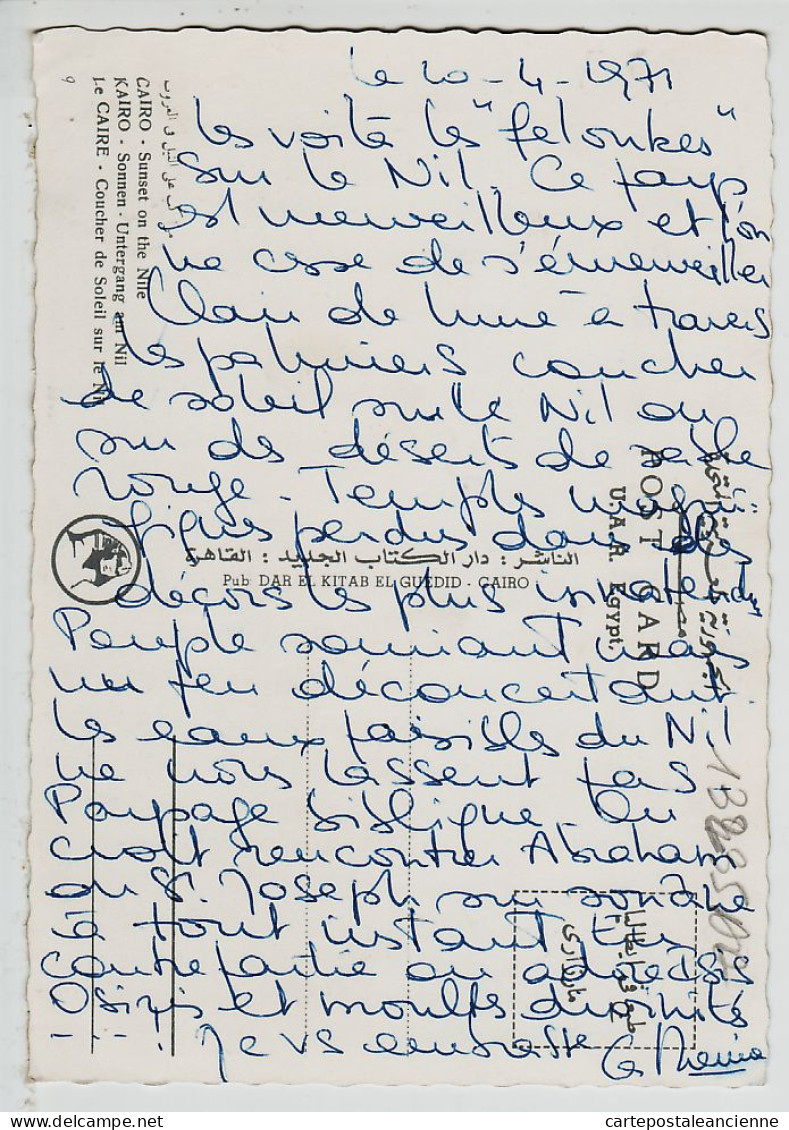 le 10-4-1971
Les voilà les "feloukes"
sur le Nil. Ce pays
est merveilleux et l'on
ne cesse de s'émerveiller
Clair de lune à travers
les palmiers coucher
de soleil sur le Nil ou
sur des déserts de sable
rouge - Temples magni
fiques perdus dans des
décors les plus inattendus
Peuple souriant mais
un peu déconcertant.
Les eaux paisibles du Nil
ne nous lassent pas.
Paysage biblique. On
croit rencontrer Abraham
ou St. Joseph sur son âne
à tout instant. En
contrepartie on adore Isis
Osiris et moults divinités
... Je vs embrasse
CAIRO - Sunset on the Nile
KAIRO - Sonnen - Untergang am Nil
Le CAIRE - Coucher de Soleil sur le Nil
9
الناشر : دار الكتاب الجديد : القاهرة
Pub DAR EL KITAB EL GUEDID - CAIRO
POST CARD
U.A.R. Egypt.
cartepostaleancienne